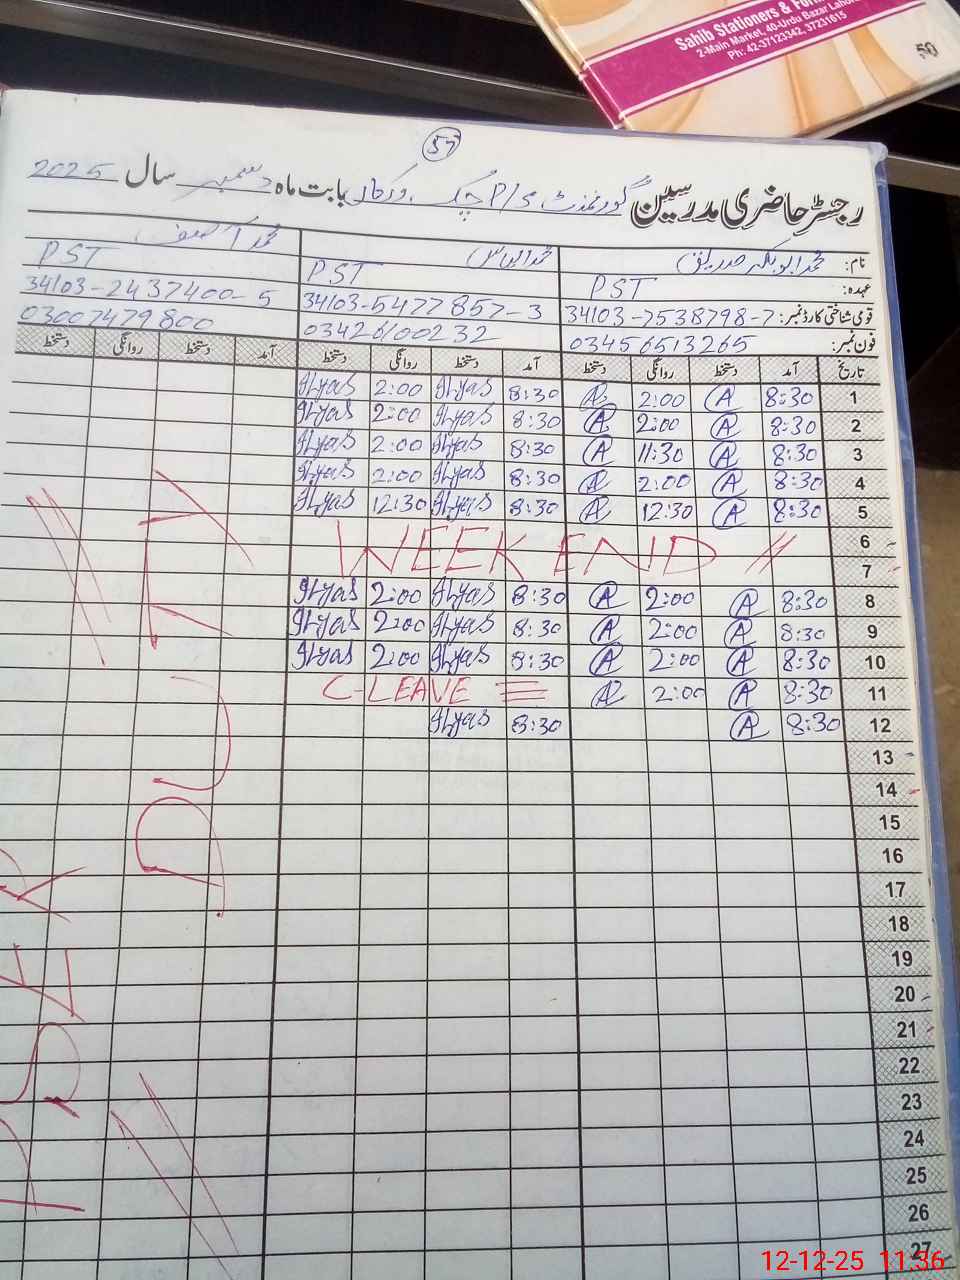 Sahib Stationers &
2-Main Market, 40-Urdu Bazar Lahore
Ph: 42-37123342, 37231615
50
57
رجسٹر حاضری مدرسین گورنمنٹ P/S چک ورکاں بابت ماہ دسمبر سال 2025
نام: محمد ابوبکر صدیق محمد الیاس محمد آصف
عہدہ: PST PST PST
قومی شناختی کارڈ نمبر: 34103-7538798-7 34103-5477857-3 34103-2437400-5
فون نمبر: 03456513265 03426100232 03007479800
تاریخ آمد دستخط روانگی دستخط آمد دستخط روانگی دستخط آمد دستخط روانگی دستخط
1 8:30 A 2:00 A 8:30 Ilyas 2:00 Ilyas
2 8:30 A 2:00 A 8:30 Ilyas 2:00 Ilyas
3 8:30 A 11:30 A 8:30 Ilyas 2:00 Ilyas
4 8:30 A 2:00 A 8:30 Ilyas 2:00 Ilyas
5 8:30 A 12:30 A 8:30 Ilyas 12:30 Ilyas
6 WEEK END //
7
8 8:30 A 2:00 A 8:30 Ilyas 2:00 Ilyas
9 8:30 A 2:00 A 8:30 Ilyas 2:00 Ilyas
10 8:30 A 2:00 A 8:30 Ilyas 2:00 Ilyas
11 8:30 A 2:00 A C-LEAVE
12 8:30 A 8:30 Ilyas
13
14
15
16
17
18
19
20
21
22
23
24
25
26
27
DUTY
12-12-25 11:36